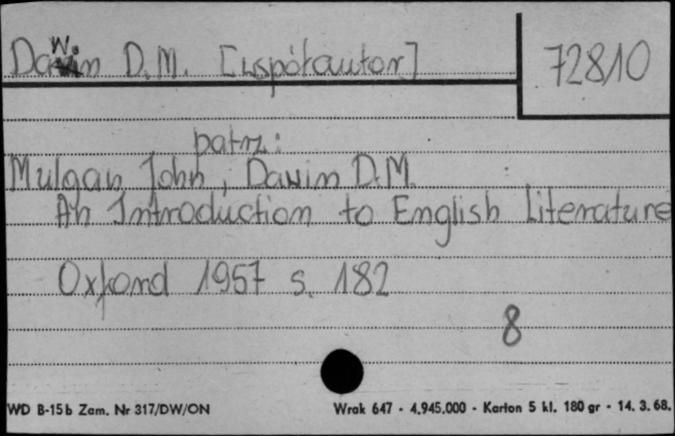 Dawin D.M. [współautor]
72810
patrz:
Mulgan John, Dawin D.M.
An Introduction to English Literature
Oxford 1957 s. 182
8
WD B-15b Zam. Nr 317/DW/ON Wrak 647 - 4.945.000 - Karton 5 kl. 180 gr - 14. 3. 68.